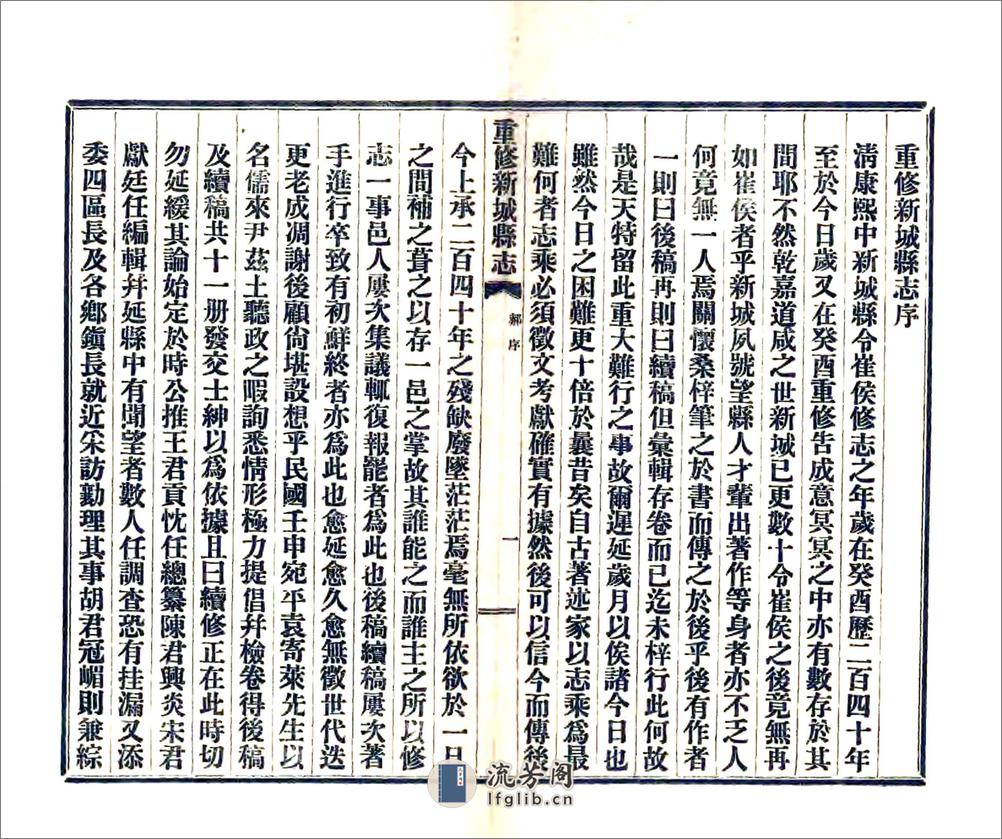 重修新城縣志序
淸康熙中新城縣令崔侯修志之年歲在癸酉歷二百四十年
至於今日歲又在癸酉重修告成意冥冥之中亦有數存於其
間耶不然乾嘉道咸之世新城已更數十令崔侯之後竟無再
如崔侯者乎新城夙號望縣人才輩出著作等身者亦不乏人
何竟無一人焉關懷桑梓筆之於書而傳之於後乎後有作者
一則曰後稿再則曰續稿但彙輯存卷而已迄未梓行此何故
哉是天特留此重大難行之事故爾遲延歲月以俟諸今日也
雖然今日之困難更十倍於曩昔矣自古著述家以志乘爲最
難何者志乘必須徵文考獻確實有據然後可以信今而傳後
重修新城縣志
郝序
一
今上承二百四十年之殘缺廢墜茫茫焉毫無所依欲於一日
之間補之葺之以存一邑之掌故其誰能之而誰主之所以修
志一事邑人屢次集議輒復報罷者爲此也後稿續稿屢次著
手進行卒致有初鮮終者亦爲此也愈延愈久愈無徵世代迭
更老成凋謝後顧尙堪設想乎民國壬申宛平袁寄萊先生以
名儒來尹茲土聽政之暇詢悉情形極力提倡幷檢卷得後稿
及續稿共十一册發交士紳以爲依據且曰續修正在此時切
勿延緩其論始定於時公推王君貢忱任總纂陳君興炎宋君
獻廷任編輯幷延縣中有聞望者數人任調查恐有挂漏又添
委四區長及各鄉鎭長就近采訪勷理其事胡君冠嵋則兼綜
流芳閣
lfglib.cn